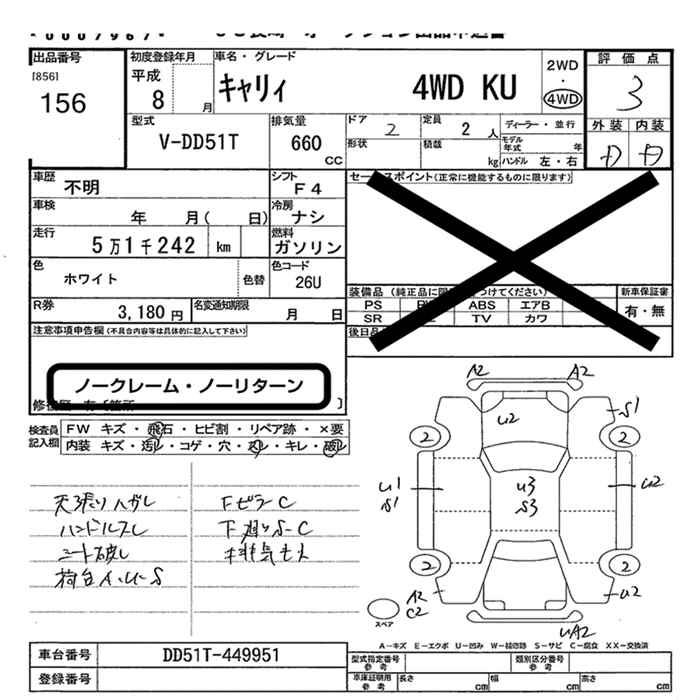 出品番号
[856]
156
初度登録年月
平成
8
月
車名・グレード
キャリィ
4WD KU
2WD
・
4WD
評価点
3
外装
内装
D
D
型式
V-DD51T
排気量
660
CC
ドア
2
定員
2 人
ディーラー・並行
形状
積載
kg
モデル年式
年
ハンドル 左・右
車歴
不明
シフト
F4
車検
年 月( 日)
冷房
ナシ
走行
5万1千242 km
燃料
ガソリン
色
ホワイト
色替
色コード
26U
R券
3,180 円
名変通知期限
月 日
セールスポイント(正常に機能するものに限ります)
新車保証書
有・無
PS
ABS
エアB
SR
TV
カワ
注意事項申告欄(不具合内容等は具体的に記入して下さい)
ノークレーム・ノーリターン
検査員
記入欄
FW キズ・飛石・ヒビ割・リペア跡・×要
内装 キズ・汚レ・コゲ・穴・スレ・キレ・破レ
天張りハガレ
ハンドルスレ
シート破レ
荷台A・U・S
Fピラ C
下廻りS・C
排気モレ
A2
A2
U2
S1
2
2
U1
S1
U3
S3
U2
2
2
A2
C2
U2
UA2
スペア
A-キズ E-エクボ U-凹み W-補修跡 S-サビ C-腐食 XX-交換済
車台番号
DD51T-449951
登録番号
型式指定番号
参考
類別区分番号
参考
車庫証明用
参考
長さ
cm
幅
cm
高さ
cm